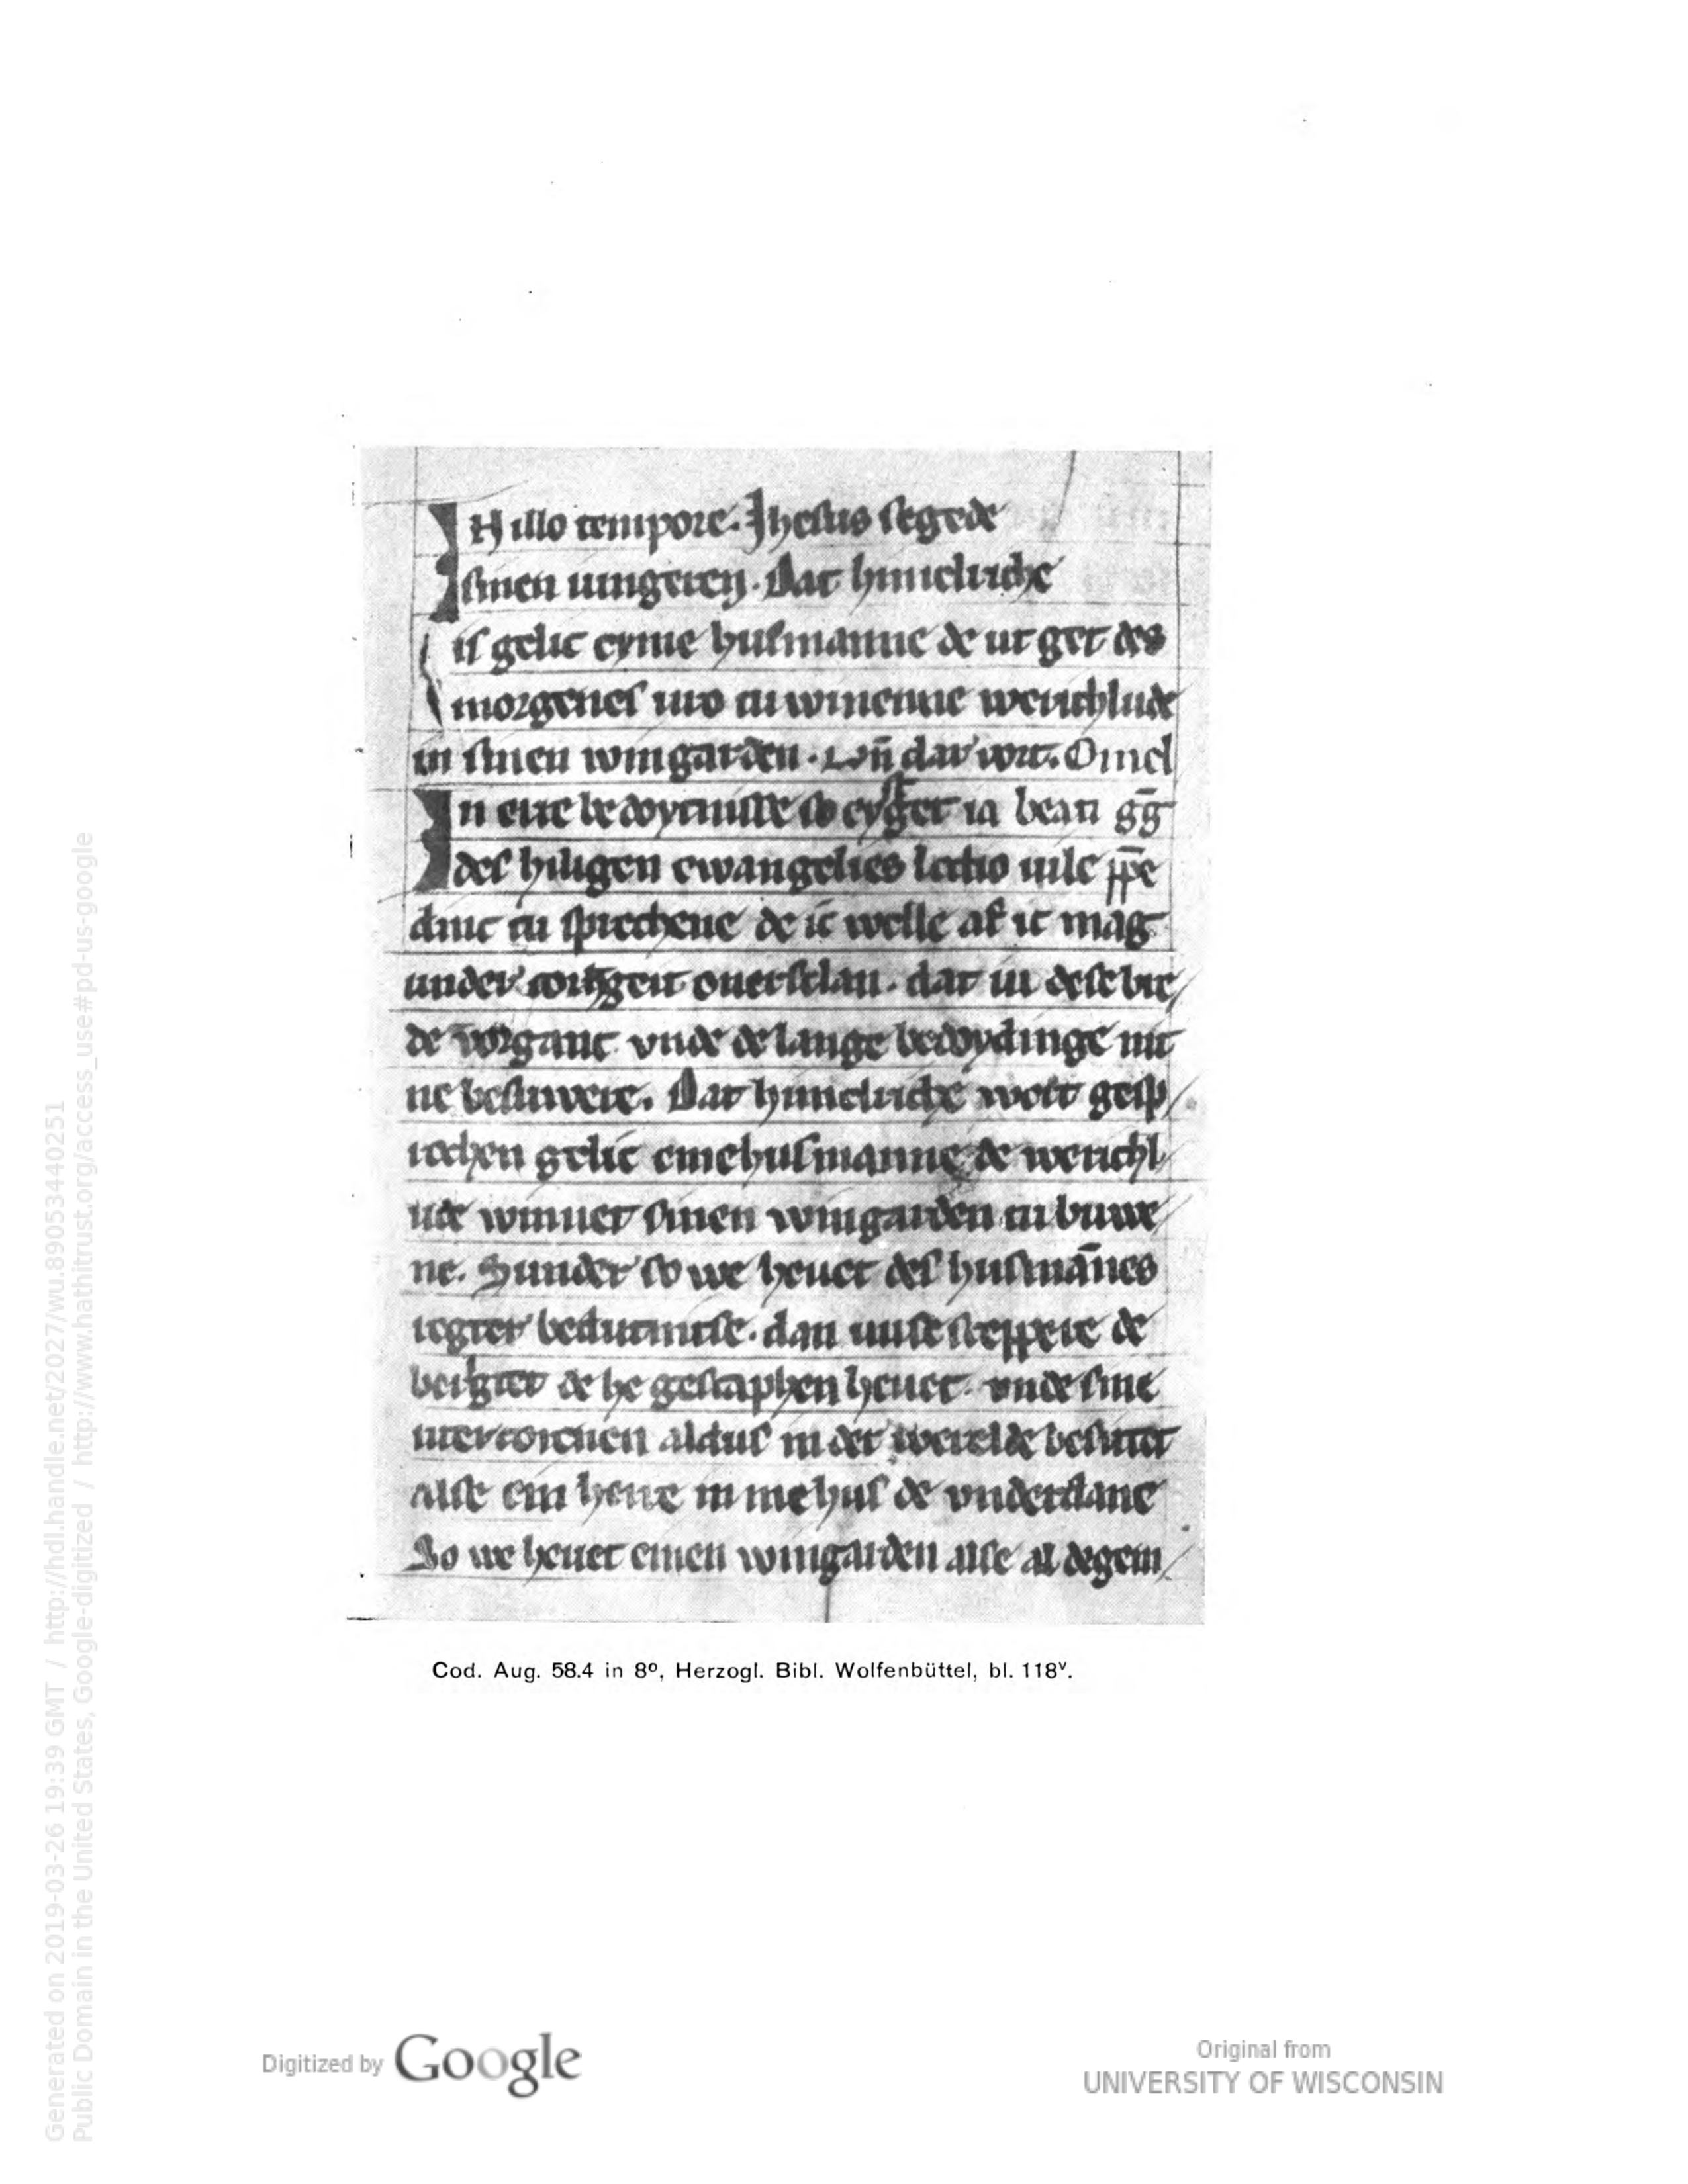 IN illo tempore. Jhesus segede
sinen iungeren. Dat himelriche
is gelic eyme husmanne de ut get des
morgenes uro tu winenne werichlude
in sinen wingarden. Omel
In ene bedoytnisse so
des hiligen ewangelies lectio uile
dinc tu sprechene de ic welle af ic mag
under ouerschlan. dat in dese
de vorganc vnde de lange bedoydinge nit
ne besuwere. Dat himelriche wort gesp
rochen gelic eine husmanne de werichl
ude winnet sinen wingarden tu buwe
ne. Sunder so we heuet des husmānes
regter bedutnisse. dan unse sceppere de
de he gescaphen heuet. vnde sine
aldus in der werelde besittet
alse ein here in me hus de vnderdane
So we heuet einen wingarden alse al degem
Cod. Aug. 58.4 in 8º, Herzogl. Bibl. Wolfenbüttel, bl. 118ᵛ.
Generated on 2019-03-26 19:39 GMT / http://hdl.handle.net/2027/wu.89053440251
Public Domain in the United States, Google-digitized / http://www.hathitrust.org/access_use#pd-us-google
Digitized by Google
Original from
UNIVERSITY OF WISCONSIN